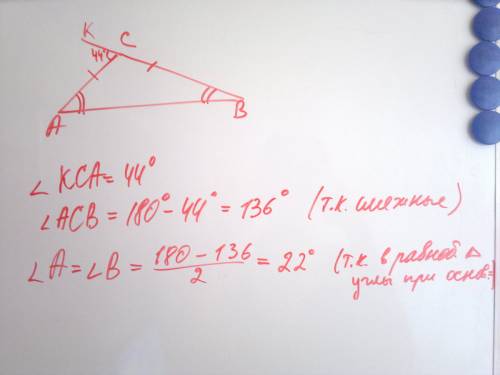 K
C
44°
A
B
∠ KCA = 44°
∠ ACB = 180° - 44° = 136° (т.к. смежные)
∠ A = ∠ B = (180 - 136)/2 = 22° (т.к. в равноб △
углы при основ.=)